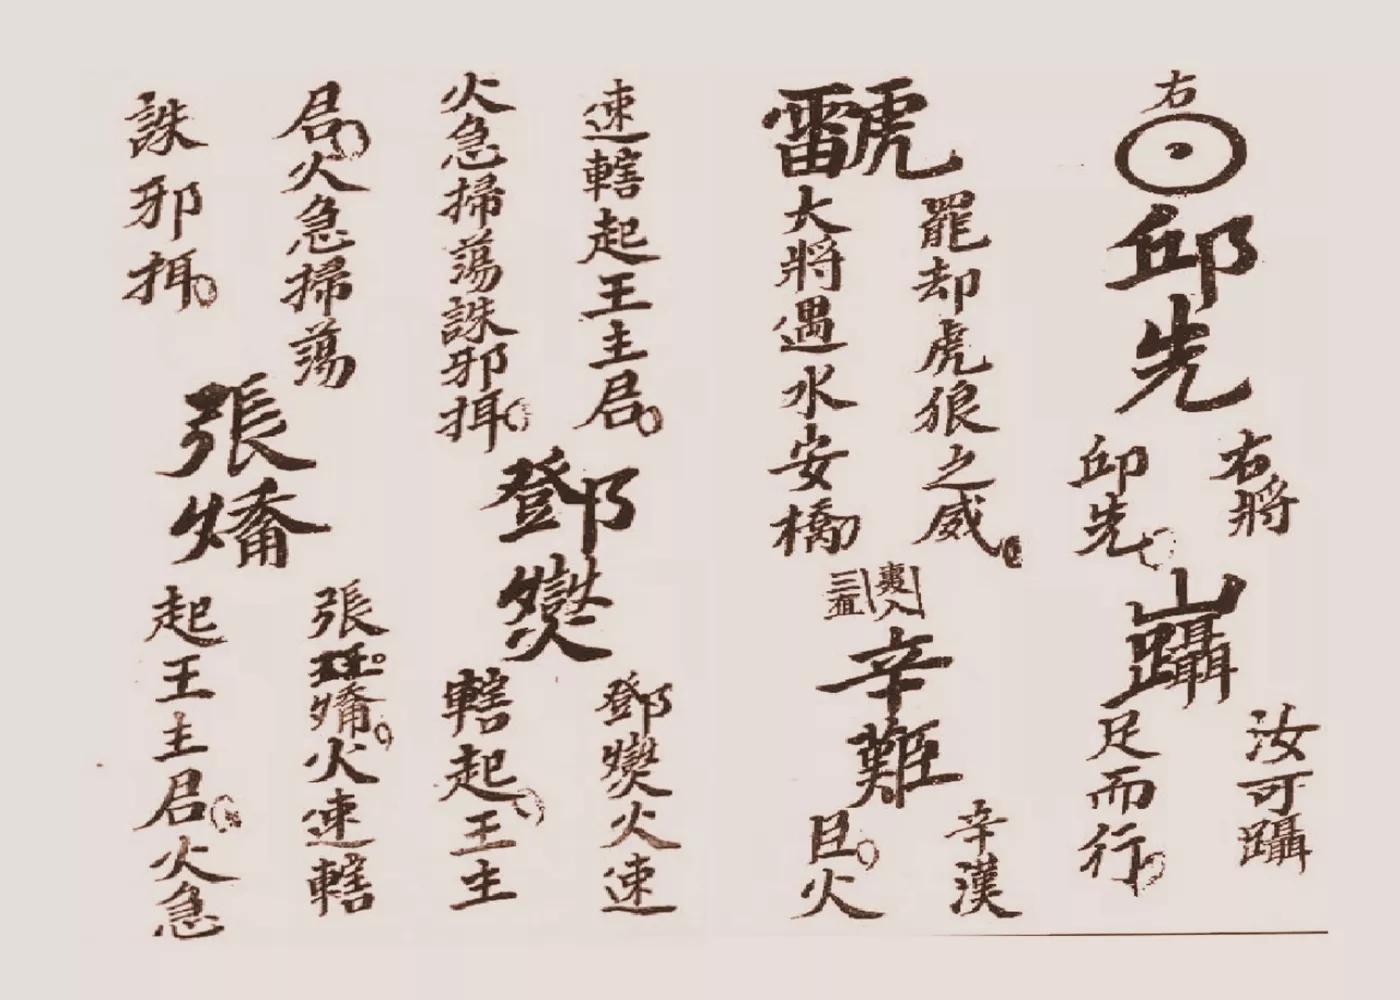 右
邱先
右將
邱先
汝可躡
足而行
罷却虎狼之威
大將遇水安橋
辛難
辛漢
臣火
速轄起王主君
火急掃蕩誅邪
鄧燮
鄧燮火速
轄起王主
君火急掃蕩
誅邪
張
張 火速轄
起王主君火急